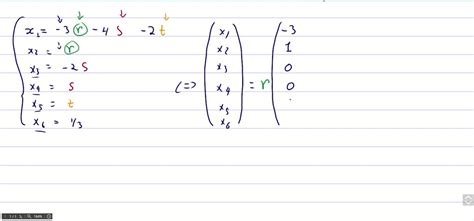 x₁ = -3 r - 4 s - 2 t
x₂ = r
x₃ = -2 s
x₄ = s
x₅ = t
x₆ = 1/3
<=> ( x₁ x₂ x₃ x₄ x₅ x₆ ) = r ( -3 1 0 0